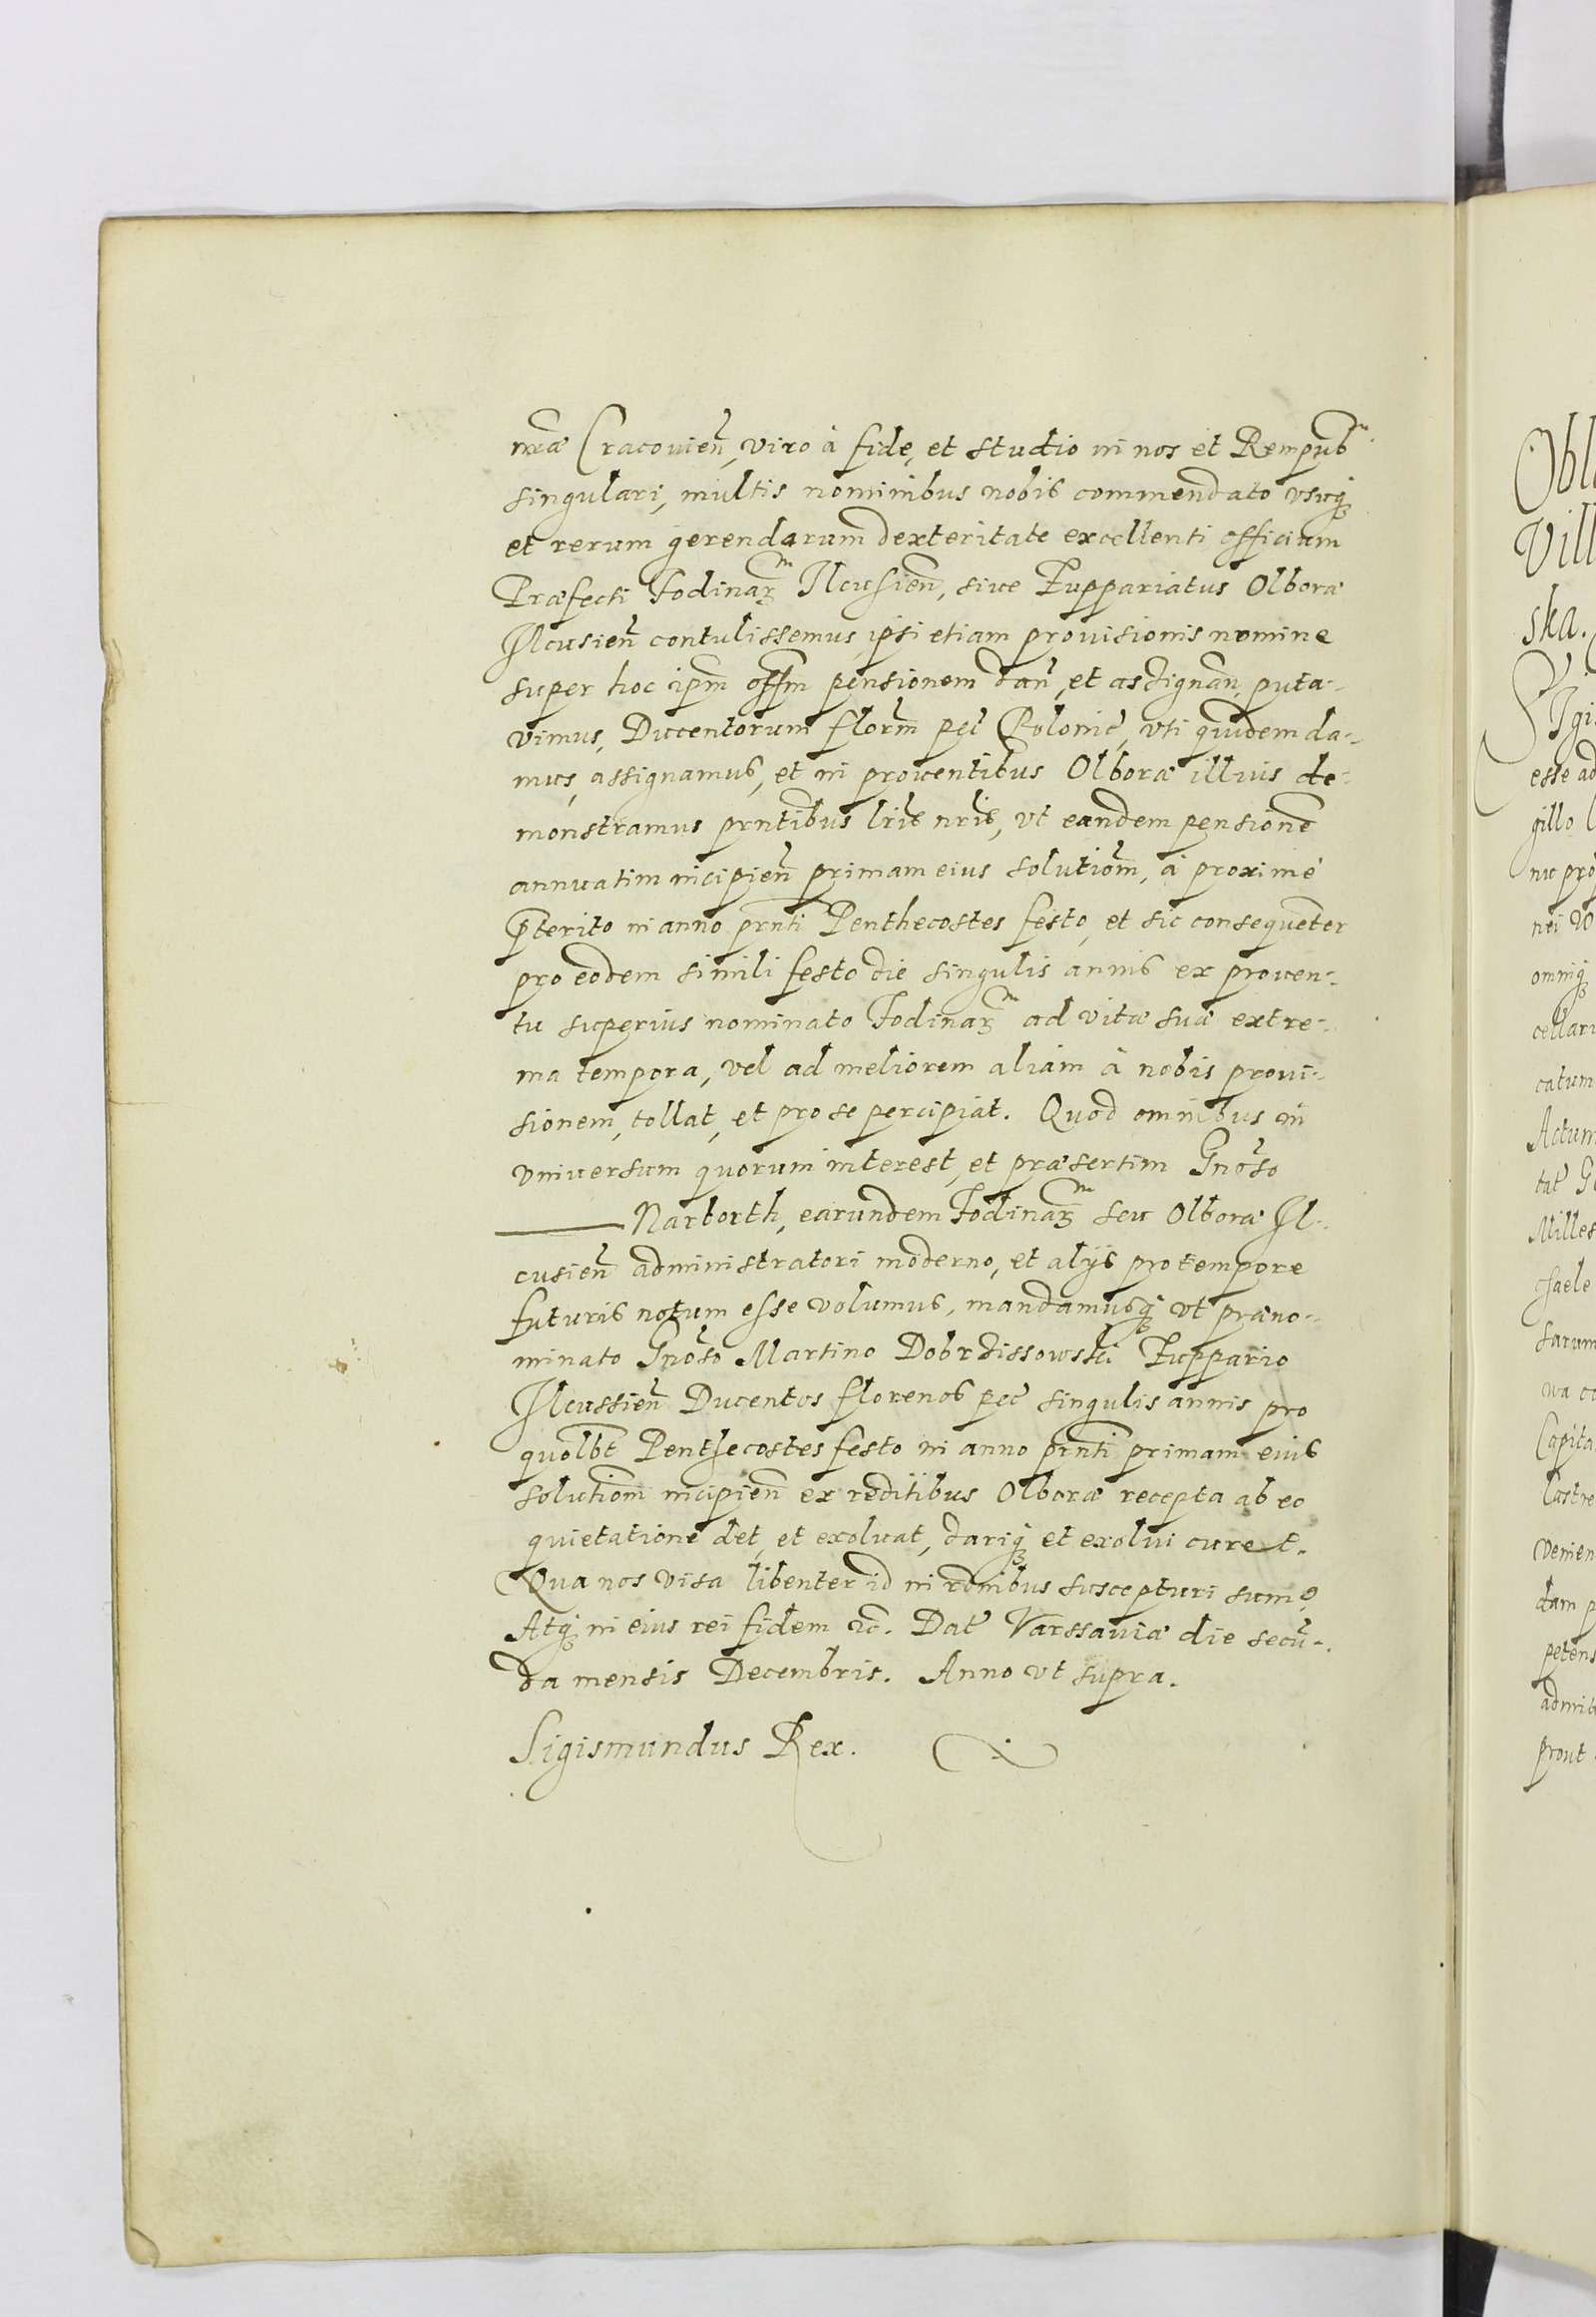 nræ Cracovien̄, viro à fide, et studio in nos et Rempub̄
singulari, multis nominibus nobis commendato usuq̃
et rerum gerendarum dexteritate excellenti officium
Præfecti Fodinaꝝ Ilcusien̄, sive Zuppariatus Olboræ
Ilcusien̄ contulissemus, ipsi etiam provisionis nomine
super hoc ipm̄ offm̄ pensionem dan̄, et assignan̄, puta-
vimus, Ducentorum florm̄ pec̄ Polonic̄, uti quidem da-
mus, assignamus, et in proventibus Olboræ illius de-
monstramus prntibus lris nris, ut eandem pensionē
annuatim incipien̄ primam eius solutiom̄, à proximè
p̄terito in anno prnti Penthecostes festo, et sic consequēter
pro eodem simili festo die singulis annis ex proven-
tu superius nominato Fodinaꝝ ad vitæ suæ extre-
ma tempora, vel ad meliorem aliam à nobis provi-
sionem, tollat, et pro se percipiat. Quod omnibus in
universum quorum interest, et præsertim Gnoso
——— Narborth, earundem Fodinaꝝ seu Olboræ Il-
cusien̄ administratori moderno, et alijs pro tempore
futuris notum esse volumus, mandamusq̃ ut præno-
minato Gnoso Martino Dobrdissowski Zuppario
Ilcussien̄ Ducentos florenos pec̄ singulis annis pro
quolbt Penthecostes festo in anno prnti primam eius
solutiom̄ incipien̄ ex reditibus Olboræ recepta ab eo
quietatione det, et exoluat, dariq̃ et exolui curet.
Qua nos visa libenter id in ronibus suscepturi sumꝯ
Atq̃ in eius rei fidem &c. Dat̄ Varssaviæ die secū-
da mensis Decembris. Anno ut supra.
Sigismundus Rex.
Obl
Vill
ska.
SIgi
esse ad
gillo
nu prop
nei
omniq̃
cellari
catum
Actum
tat̄ G
Milles
sarum
Capita
lastre
venien
dam p
petens
admit
prout